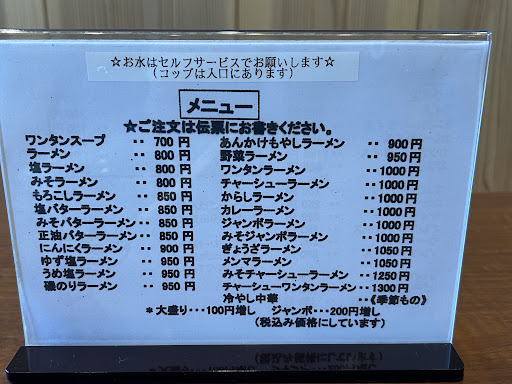 ☆お水はセルフサービスでお願いします☆
(コップは入口にあります)
メニュー
★ご注文は伝票にお書きください。
ワンタンスープ ‥ 700 円
ラーメン ‥ 800 円
塩ラーメン ‥ 800 円
みそラーメン ‥ 800 円
もろこしラーメン ‥ 850 円
塩バターラーメン ‥ 850 円
みそバターラーメン ‥ 850 円
正油バターラーメン ‥ 850 円
にんにくラーメン ‥ 900 円
ゆず塩ラーメン ‥ 950 円
うめ塩ラーメン ‥ 950 円
磯のりラーメン ‥ 950 円
あんかけもやしラーメン ‥ 900 円
野菜ラーメン ‥ 950 円
ワンタンラーメン ‥1000 円
チャーシューラーメン ‥1000 円
からしラーメン ‥1000 円
カレーラーメン ‥1000 円
ジャンボラーメン ‥1000 円
みそジャンボラーメン ‥1000 円
ぎょうざラーメン ‥1050 円
メンマラーメン ‥1050 円
みそチャーシューラーメン ‥1250 円
チャーシューワンタンラーメン ‥1300 円
冷やし中華 ‥《季節もの》
*大盛り･･･100円増し ジャンボ･･･200円増し
(税込み価格にしています)